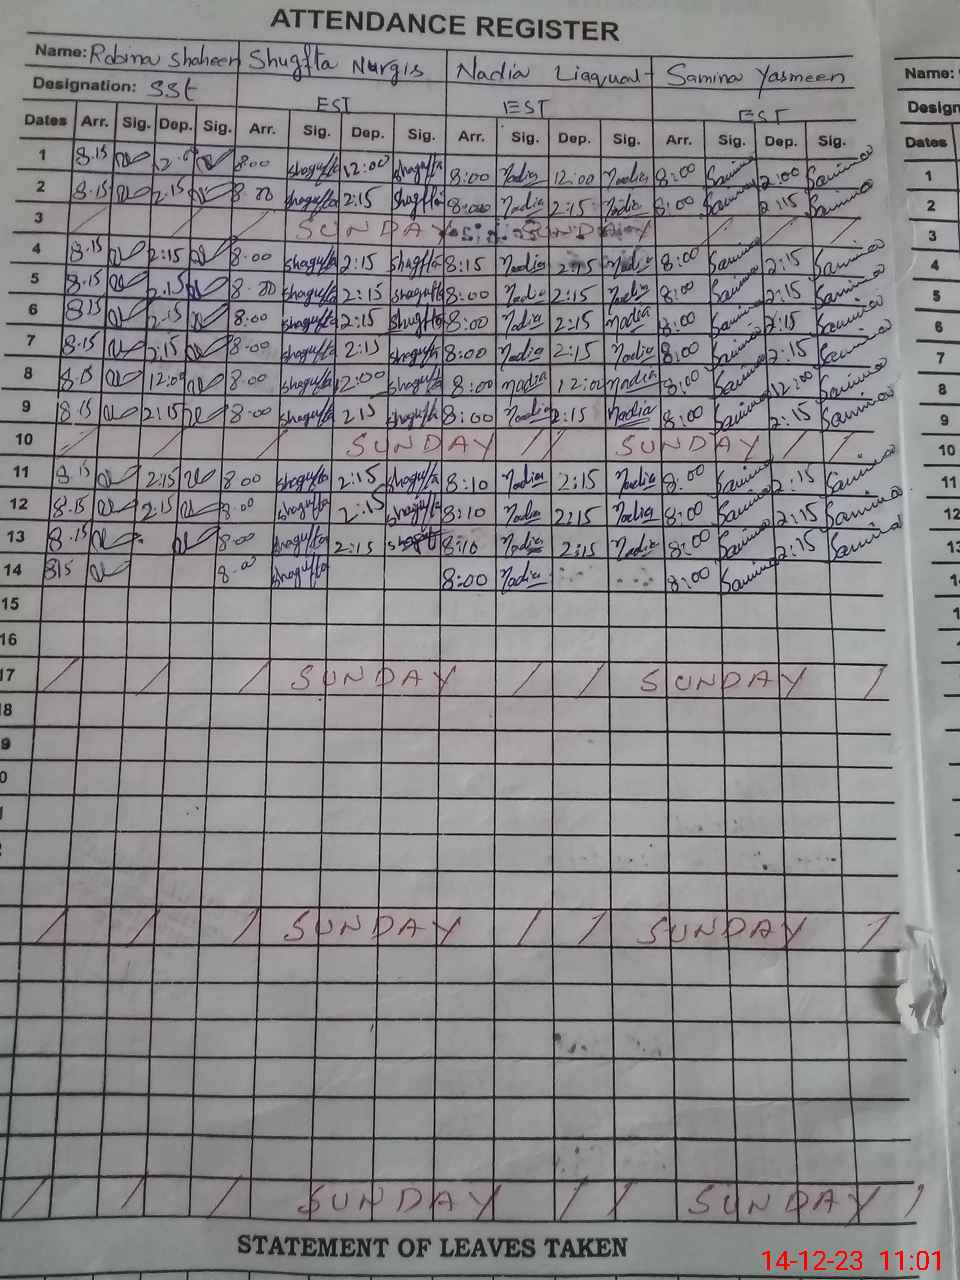 ATTENDANCE REGISTER
Name: Robina Shaheen Shugfta Nurgis Nadia Liaqual Samina Yasmeen Name:
Designation: SSt EST EST EST Design
Dates Arr. Sig. Dep. Sig. Arr. Sig. Dep. Sig. Arr. Sig. Dep. Sig. Arr. Sig. Dep. Sig. Dates
1 8.15 8:00 shagufta 12:00 shagufta 8:00 Nadia 12:00 Nadia 8:00 Samina 2:00 Samina 1
2 8.15 2:15 shagufta 2:15 Shagfta 8:00 Nadia 2:15 Nadia 8:00 Samina 2:15 Samina 2
3 SUNDAY SUNDAY 3
4 8.15 2:15 8:00 shagufta 2:15 shagfta 8:15 Nadia 2:15 Nadia 8:00 Samina 2:15 Samina 4
5 8.15 2.15 shagufta 2:15 shagufta 8:00 Nadia 2:15 Nadia 8:00 Samina 2:15 Samina 5
6 8.15 2.15 8:00 shagufta 2:15 shugfta 8:00 Nadia 2:15 Nadia 8:00 Samina 2:15 Samina 6
7 8.15 2:15 8.00 shagufta 2:15 shagufta 8:00 Nadia 2:15 Nadia 8:00 Samina 2:15 Samina 7
8 8.15 12:00 8.00 shagufta 12:00 shagufta 8:00 Nadia 12:00 Nadia 8:00 Samina 12:00 Samina 8
9 8.15 2:15 8.00 shagufta 2:15 shagufta 8:00 Nadia 2:15 Nadia 8:00 Samina 2:15 Samina 9
10 SUNDAY SUNDAY 10
11 8.15 2:15 8.00 shagufta 2:15 shagufta 8:10 Nadia 2:15 Nadia 8:00 Samina 2:15 Samina 11
12 8.15 2:15 8.00 shagufta 2:15 shagufta 8:10 Nadia 2:15 Nadia 8:00 Samina 2:15 Samina 12
13 8.15 8:00 shagufta 2:15 8:10 Nadia 2:15 Nadia 8:00 Samina 2:15 Samina 13
14 815 8.00 shagufta 8:00 Nadia 8:00 Samina 14
15
16
17 SUNDAY SUNDAY
18
9
0
SUNDAY SUNDAY
SUNDAY SUNDAY
STATEMENT OF LEAVES TAKEN
14-12-23 11:01